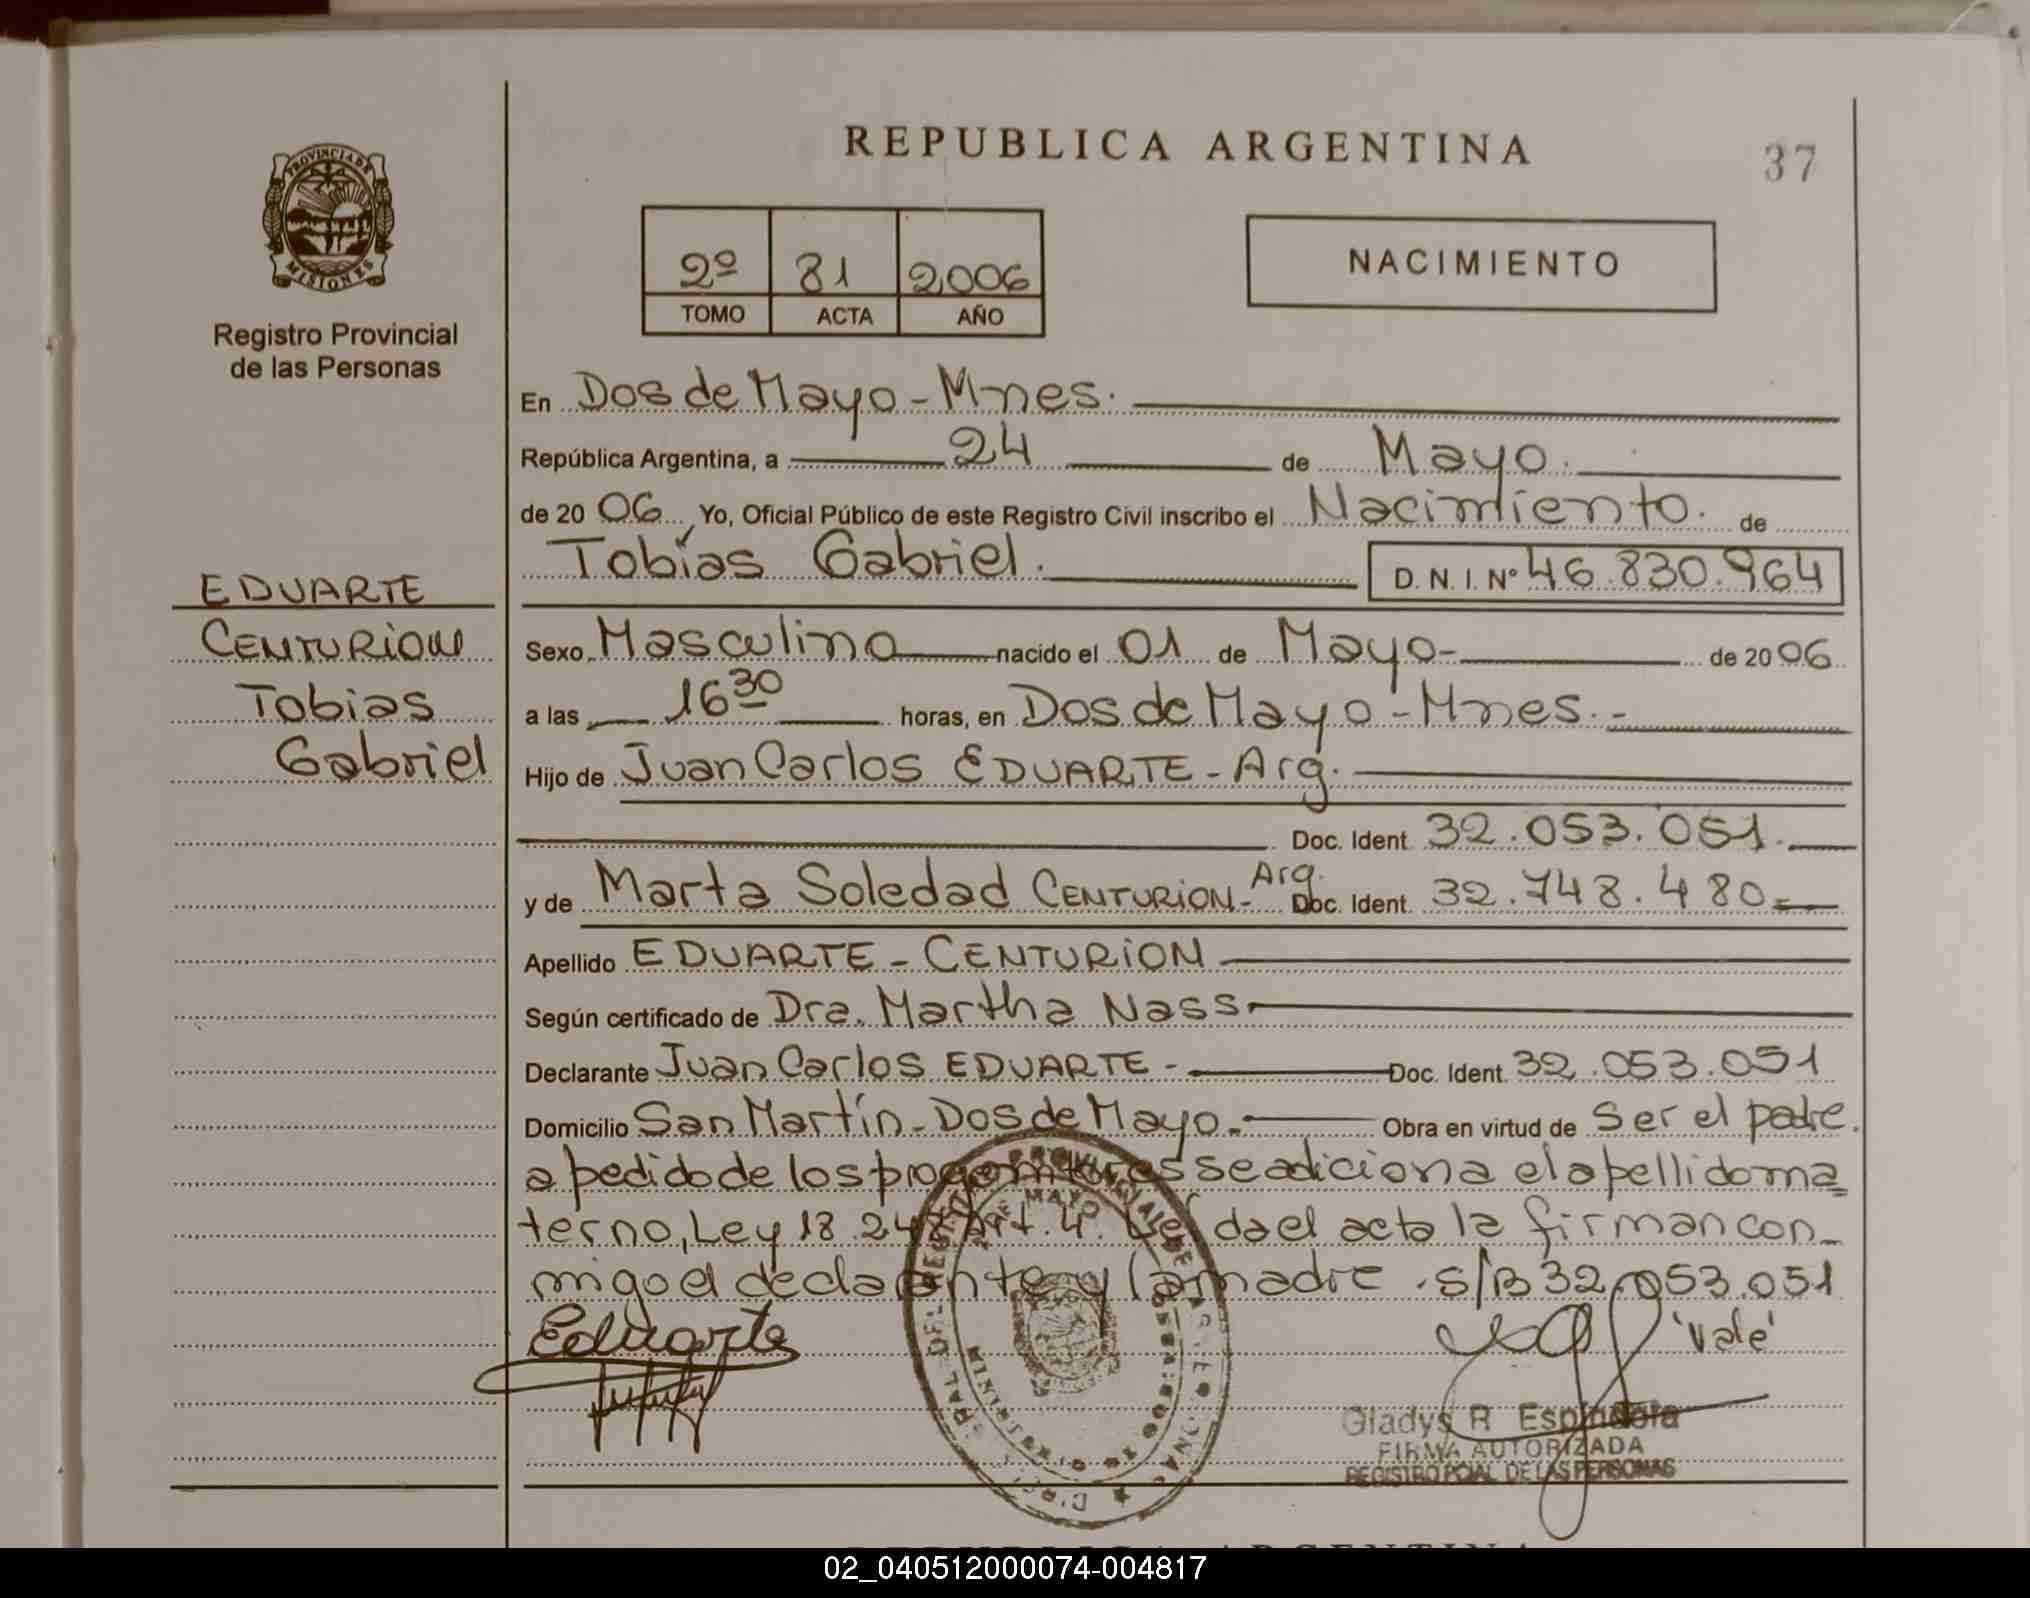 REPUBLICA ARGENTINA
37
PROVINCIA DE
MISIONES
Registro Provincial
de las Personas
2º 81 2,006
TOMO ACTA AÑO
NACIMIENTO
En Dos de Mayo - Mnes.
República Argentina, a 24 de Mayo.
de 20 06 Yo, Oficial Público de este Registro Civil inscribo el Nacimiento. de
Tobías Gabriel. D. N. I. Nº 46.830.964
EDUARTE
CENTURION
Tobias
Gabriel
Sexo Masculino nacido el 01 de Mayo- de 20 06
a las 16 30 horas, en Dos de Mayo - Mnes. -
Hijo de Juan Carlos EDUARTE - Arg.
Doc. Ident. 32.053.051.
y de Marta Soledad CENTURION - Arg. Doc. Ident. 32.748.480=
Apellido EDUARTE - CENTURION
Según certificado de Dra. Martha Nass
Declarante Juan Carlos EDUARTE - Doc. Ident. 32.053.051
Domicilio San Martín - Dos de Mayo. - Obra en virtud de Ser el padre.
a pedido de los progenitores se adiciona el apellido ma
terno, Ley 18.248 Art. 4. Leída el acta la firman con_
migo el declarante y la madre. S/B 32.053.051
Eduarte
'Vale'
Gladys R Espíndola
FIRMA AUTORIZADA
REGISTRO PCIAL DE LAS PERSONAS
02_040512000074-004817